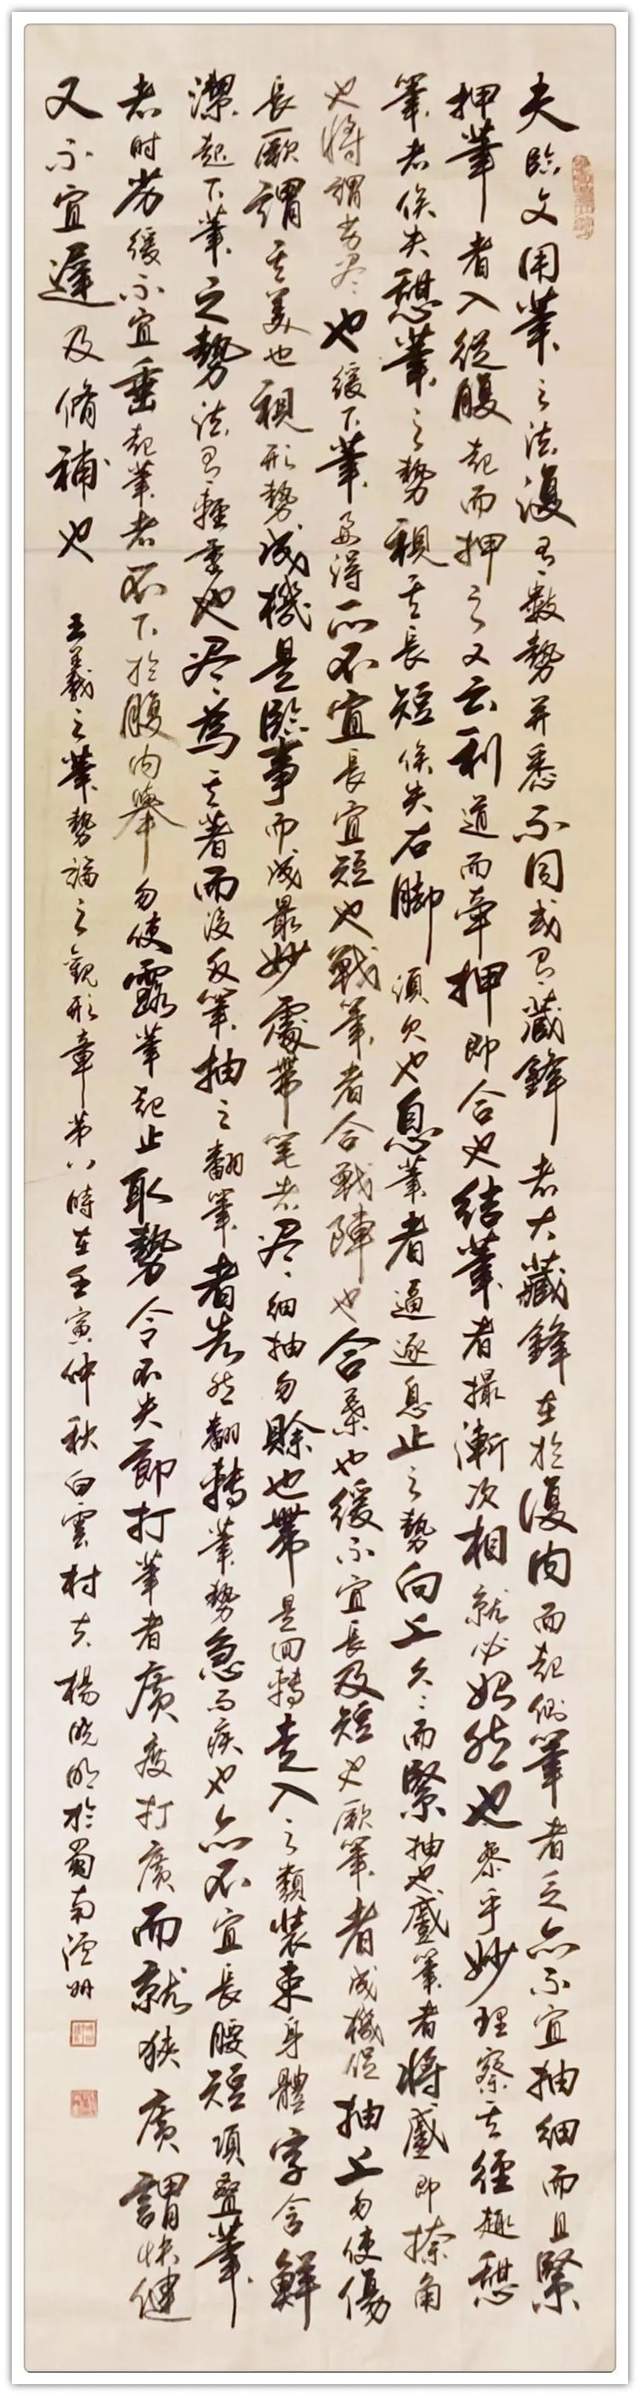 夫临文用筆之法復有數勢并悉不同或有藏鋒者大藏鋒在於復内而起側筆者乏亦不宜抽細而且緊
押筆者入從腹起而押之又云利道而牽押即合也结筆者撮漸次相就必始然也参乎妙理察其徑趣憩
筆者俟失憩筆之勢視其長短俟失右脚須欠也息筆者逼逐息止之勢向上久久而緊抽也蹙筆者将蹙即捺角
也将謂劣盡也緩下筆要得所不宜長宜短也戰筆者合戰陣也合葉也緩不宜長及短也厥筆者成機促抽上勿使傷
長厥謂其美也視形勢成機是临事而成最妙處帶笔者尽尽細抽勿賒也帶是回轉走入之類装束身體字含鮮
潔起下筆之勢法有輕重也尽為其著而後反筆抽之翻筆者先然翻轉筆勢急而疾也亦不宜長腰短項叠筆
者时劣緩不宜垂起筆者不下於腹内舉勿使露筆起止取勢令不失節打筆者廣度打廣而就狭廣謂快健
又不宜遲及脩補也
王羲之筆勢論之觀形章第八時在壬寅仲秋白雲村夫楊曉明於蜀南瀘州